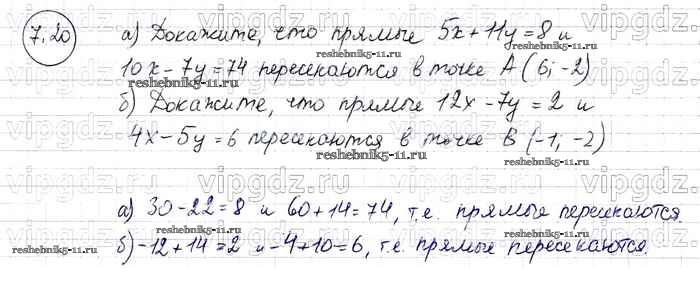 7.20 а) Докажите, что прямые 5x+11y=8 и
10x-7y=74 пересекаются в точке A (6; -2)
б) Докажите, что прямые 12x-7y=2 и
4x-5y=6 пересекаются в точке B (-1; -2)
а) 30-22=8 и 60+14=74, т.е. прямые пересекаются.
б) -12+14=2 и -4+10=6, т.е. прямые пересекаются.
vipgdz.ru
reshebnik5-11.ru